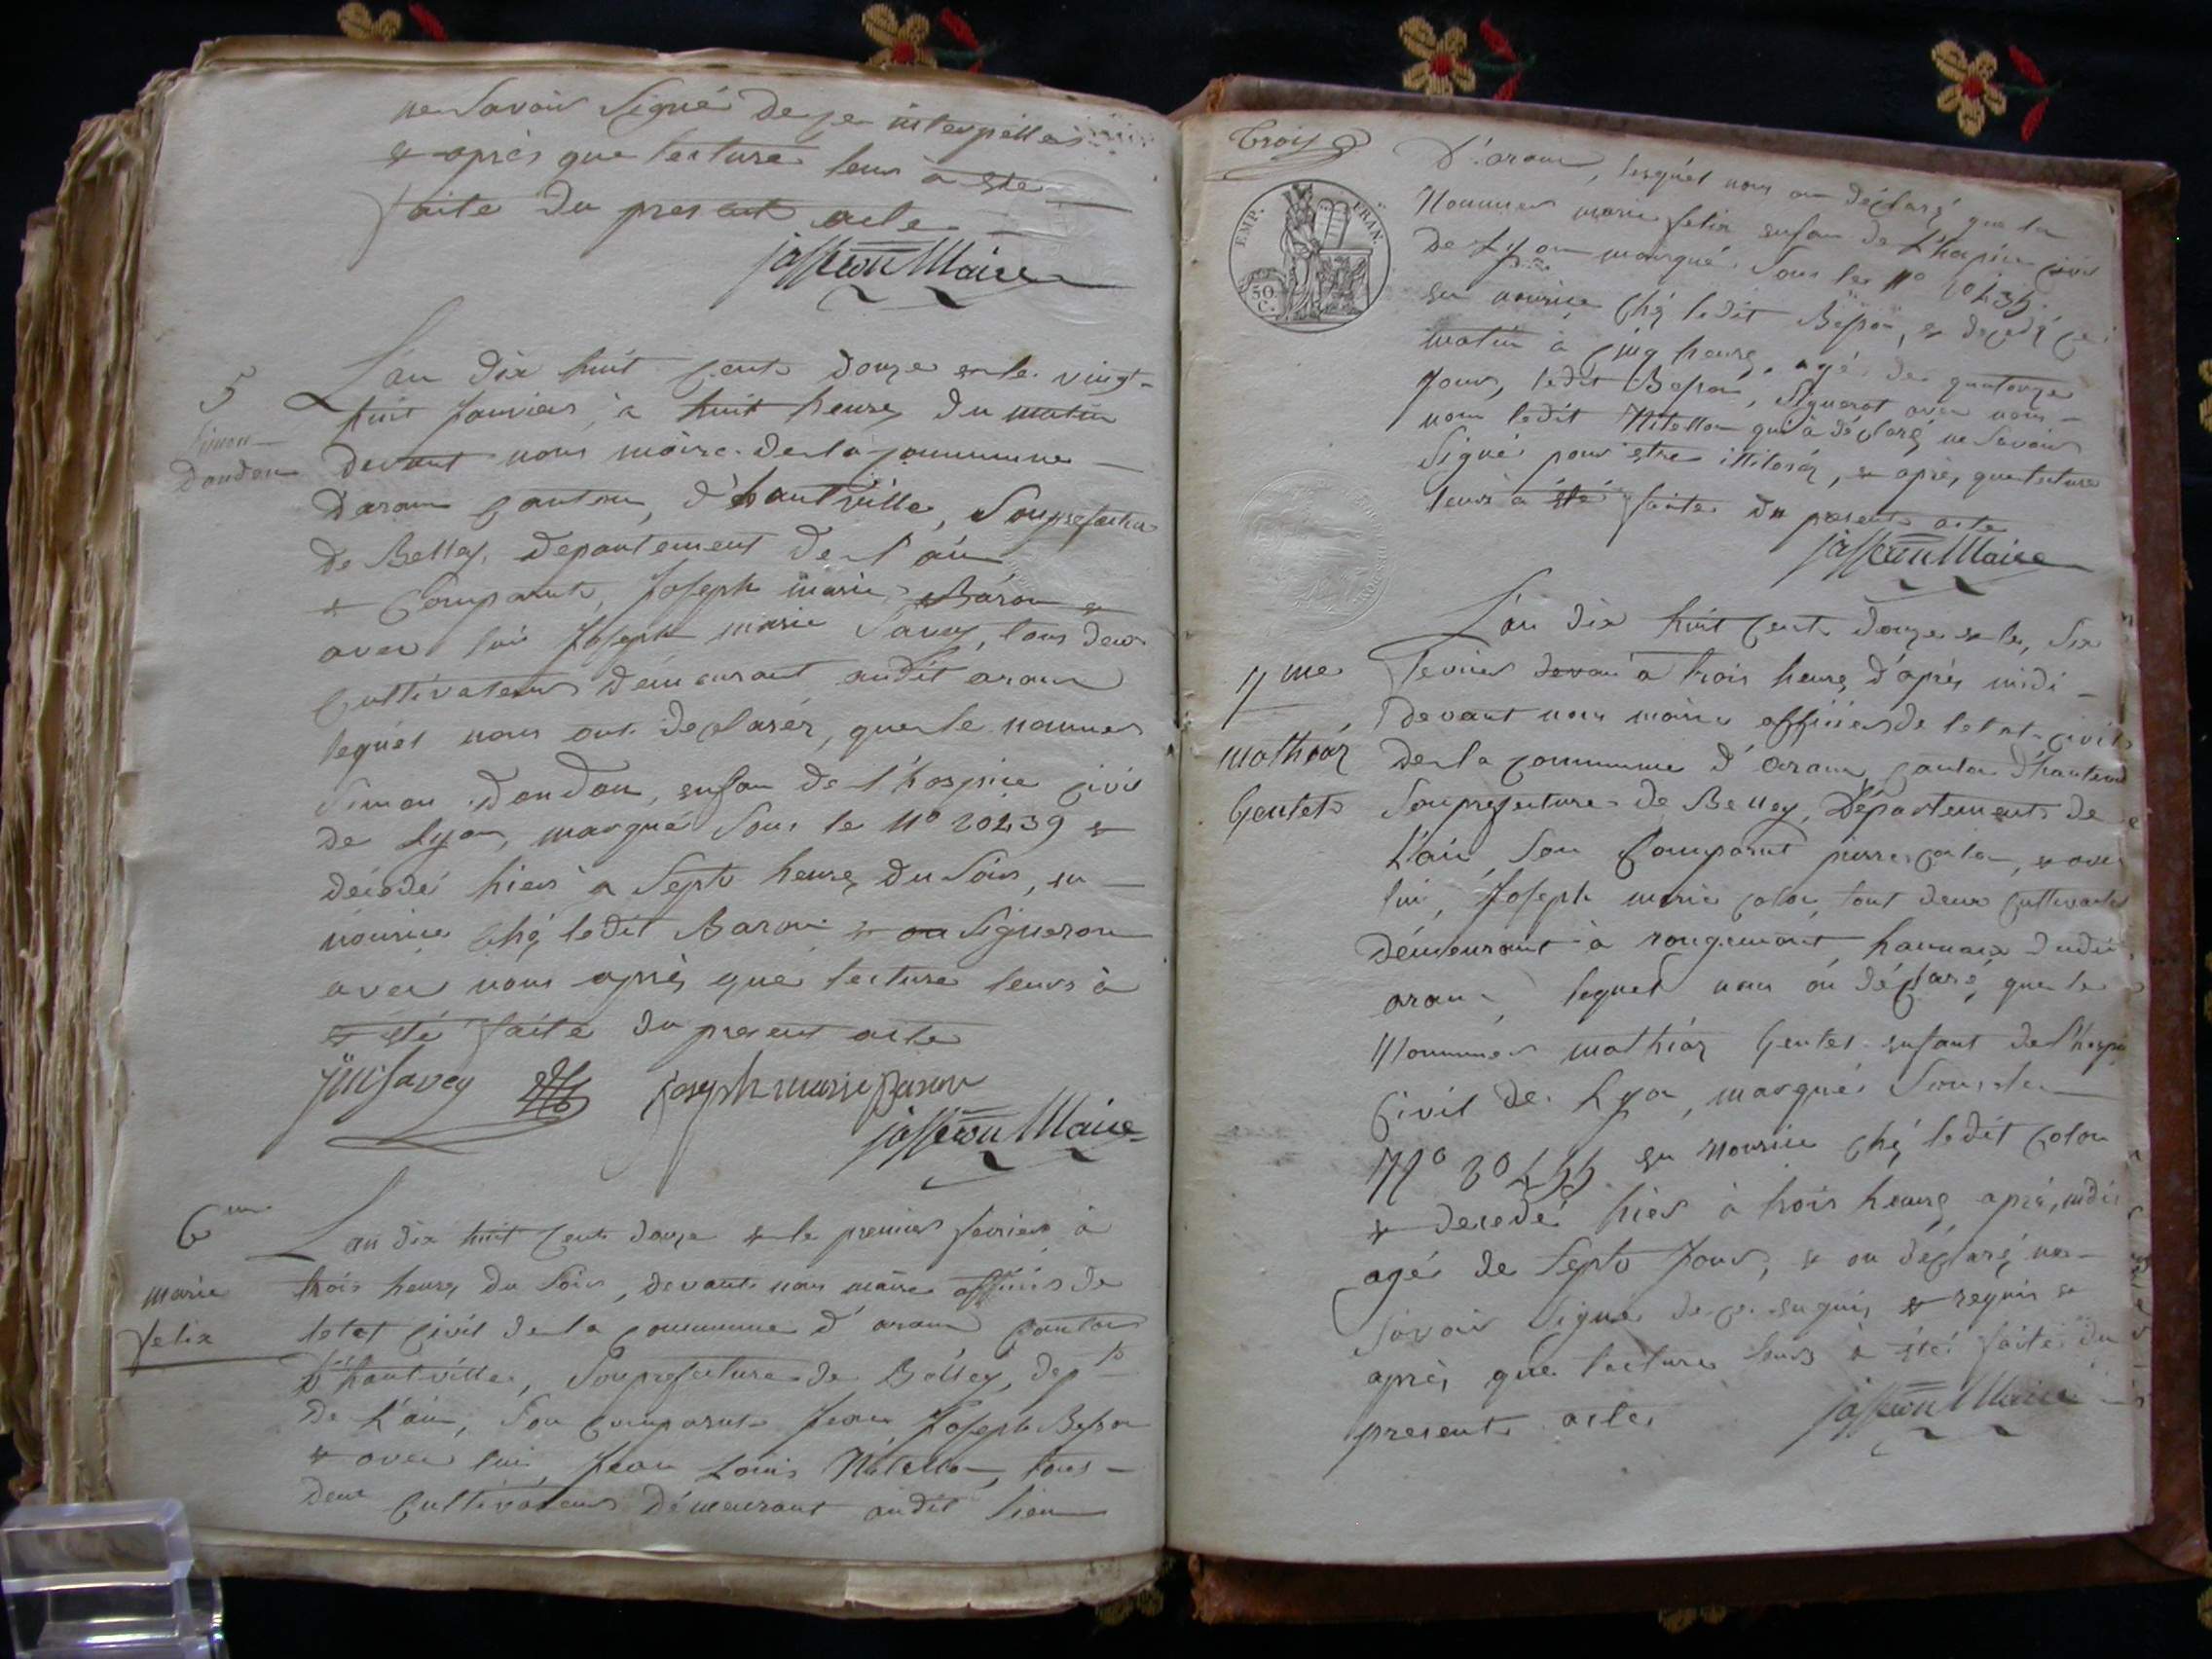 ne Savoir Signé de ce interpellés
& après que lecture leur a été
faite du present acte
jasseron Maire
5
Simon
Dondon
L'an dix huit cent douze & le vingt
huit Janvier, à huit heures du matin
devant nous maire de la commune
d'aranc canton, d'hautville, Souprefecture
de Belley, departement de l'ain
& Comparut, Joseph marie Baron &
avec lui Joseph marie Savey, tous deux
Cultivateurs demeurant audit aranc
lequel nous ont declarér, que le nommer
Simon Dondon, enfan de l'hospice civil
de Lyon, marqué Sous le N° 20439 &
décédé hier à Sept heures du Soir, en
nourice ché ledit Baron & on Signeron
avec nous après que lecture leurs à
& été faite du present acte
JM Savey joseph marie Baron
jasseron Maire
6me
marie
felix
L'an dix huit Cent douze & le premier fevrier à
trois heures du Soir, devant nous maire officier de
letat civil de la commune d'aranc canton
d'hautville, Souprefecture de Belley, dept
de L'ain, Son comparut Jean Joseph Besson
& avec lui, Jean Louis Nitellon, tous
deux Cultivateurs demeurant audit lieu
Trois
EMP. FRAN.
50 C.
D'aranc, lesquel nous on déclaré que la
Nommer marie felix enfan de L'hospice civil
de Lyon marqué Sous le N°
en nourice ché ledit Besson, & decedé ce
matin à cinq heures, agé de quatorze
Jours, ledit Besson, Signerat avec nous
non ledit Nitellon qui a déclaré ne Savoir
Signér pour etre illiterér, & après que lecture
leurs a été faite du present acte
jasseron Maire
7me
mathiar
Gentet
L'an dix huit Cent douze & le, Six
fevrier devan à trois heures d'après midi
devant nous maire officier de letat civil
de la commune d'aranc canton d'hautevill
Souprefecture de Belley, Département de
L'ain, Son Comparut pierre colon, & avec
lui, Joseph marie colon, tout deux Cultivateur
démeurant à rougemont, hammaux dudit
aranc, lequel nous on déclaré, que le
Nommer mathiar Gentet enfant de l'hospi
Civil de Lyon, marqué Sous le
N° en Nourice ché ledit colon
& decedé hier à trois heures après midi
agé de Sept Jours, & on déclaré ne
Savoir Signer de ce enquis & requis &
après que lecture leurs a été faite du
present acte
jasseron Maire